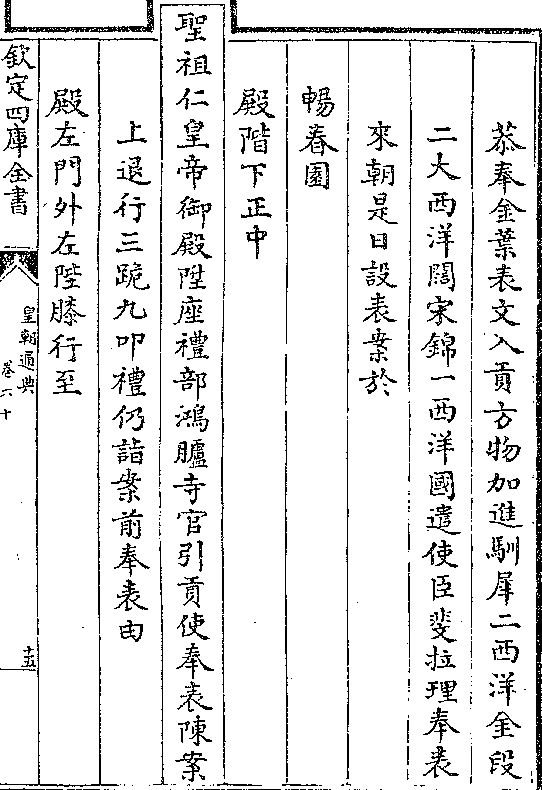 恭奉金葉表文入貢方物加進馴犀二西洋金段
二大西洋闊宋錦一西洋國遣使臣斐拉理奉表
來朝是日設表案於
暢春園
殿階下正中
聖祖仁皇帝御殿陞座禮部鴻臚寺官引貢使奉表陳案
上退行三跪九叩禮仍詣案前奉表由
殿左門外左陛膝行至
欽定四庫全書
皇朝通典
卷六十
十五